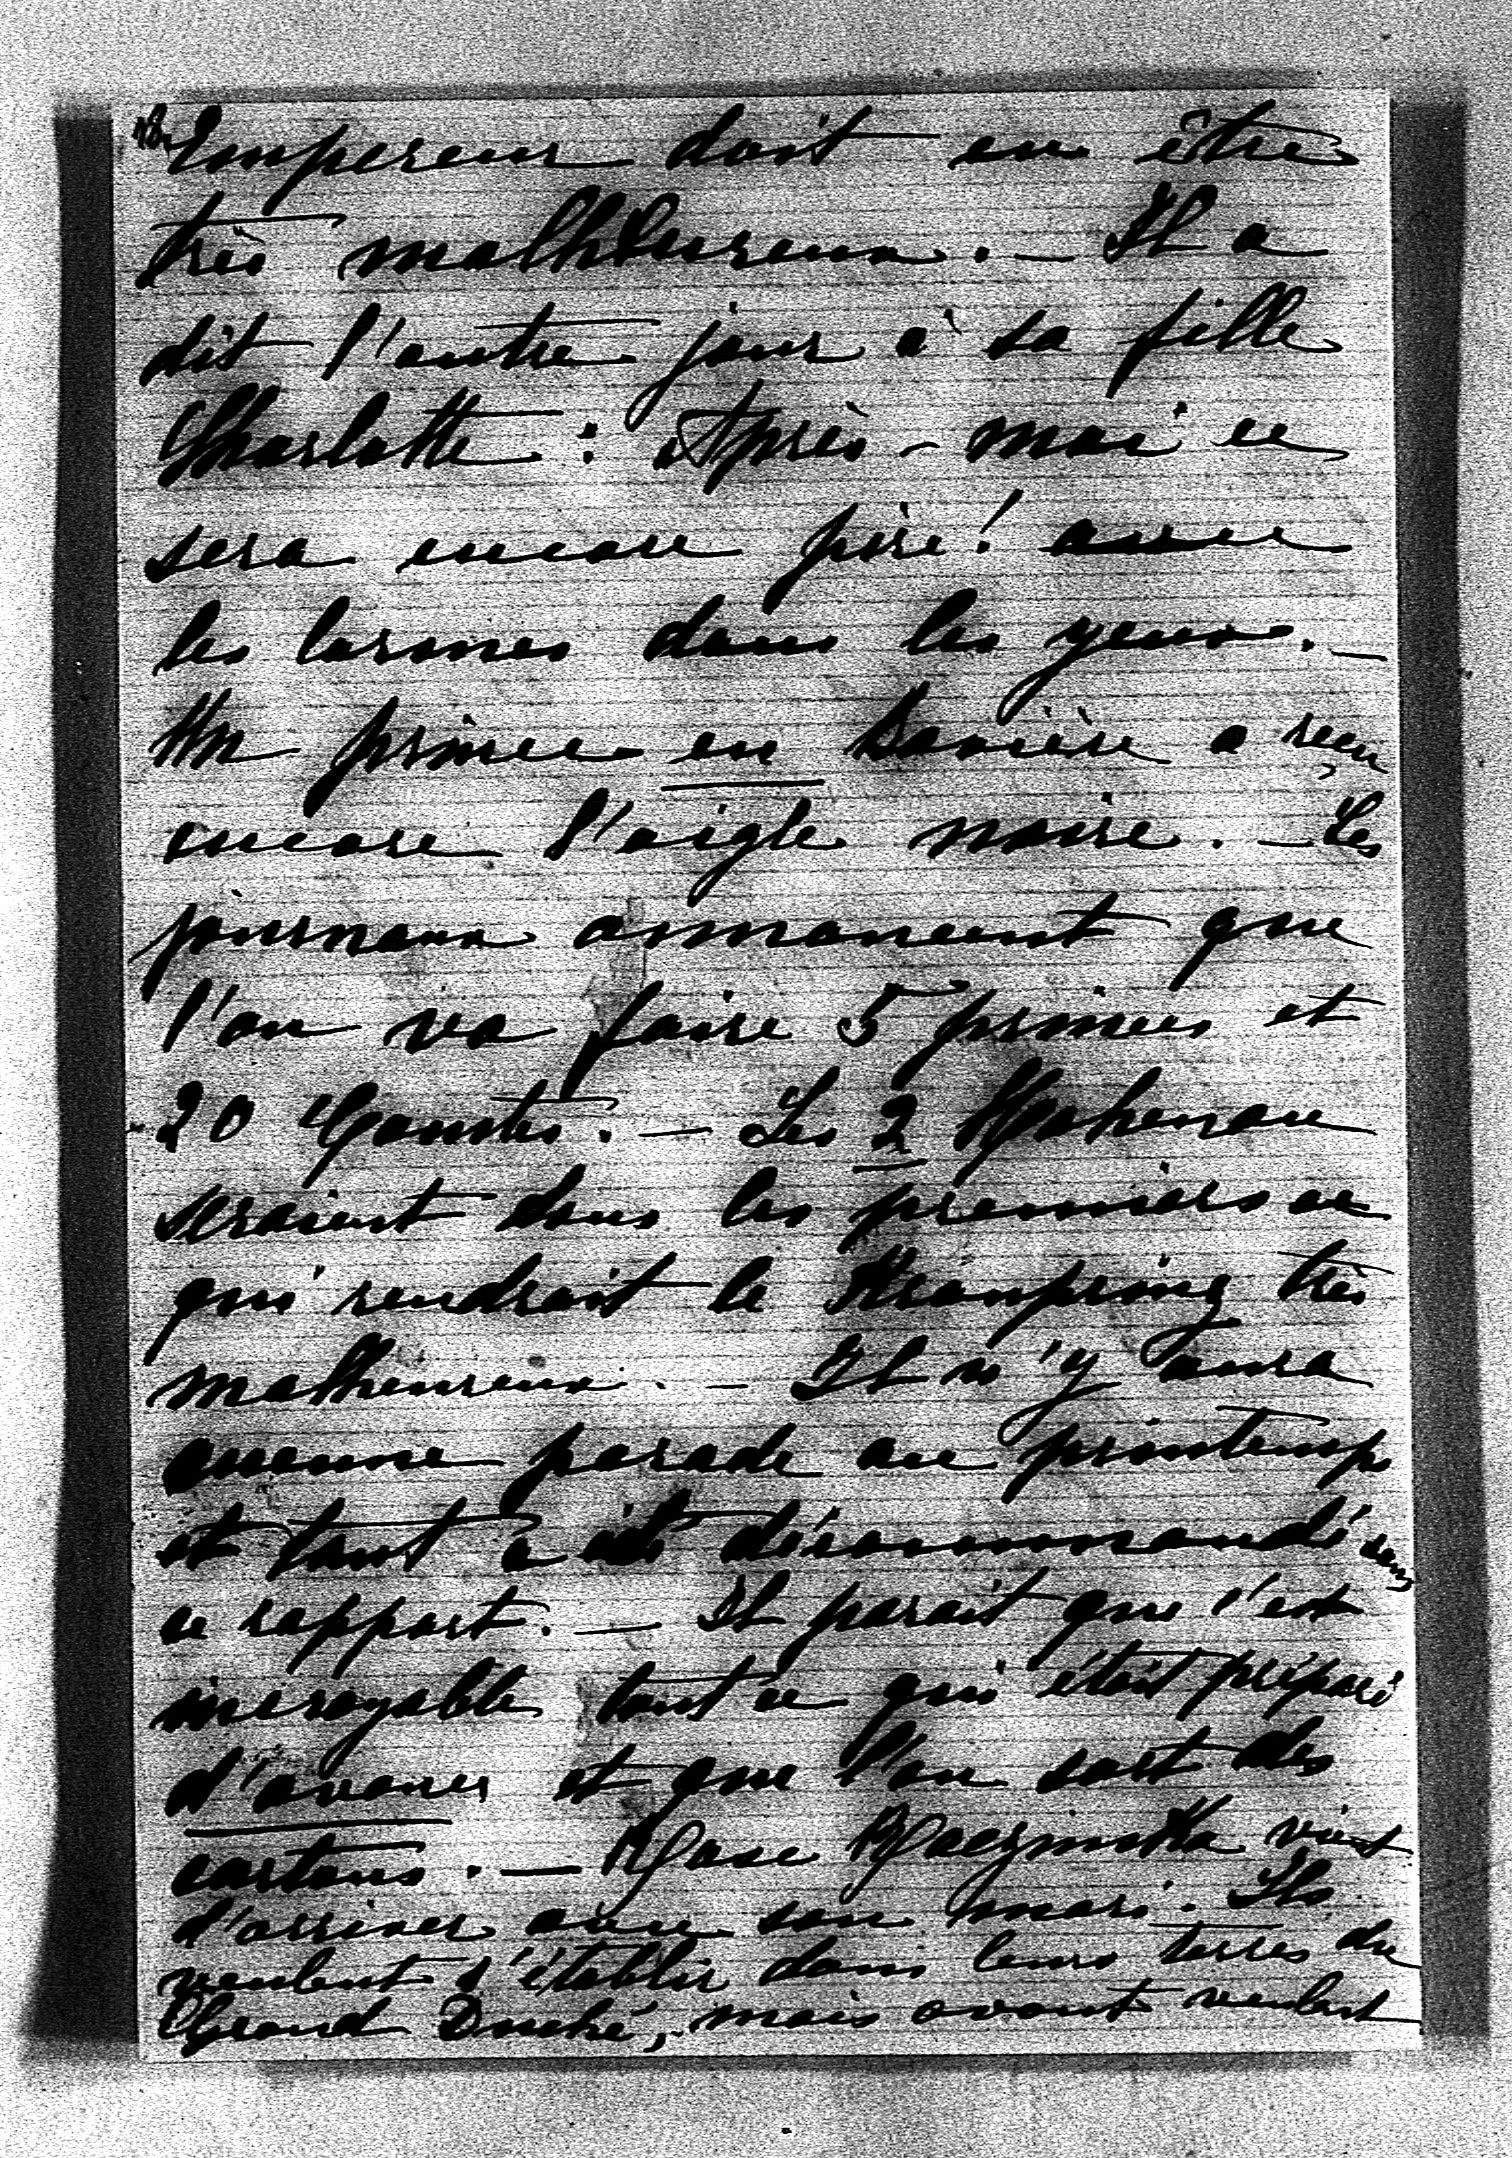 Empereur doit en être
très malheureux. — Il a
dit l'autre jour à sa fille
Charlotte : Après-moi ce
sera encore pire! avec
les larmes dans les yeux. —
Un prince en Bavière a reçu
encore l'aigle noire. — Les
journaux annoncent que
l'on va faire 5 princes et
20 Comtes. — Les 2 Hohenau
seraient dans les premiers ce
qui rendrait le Kronprinz très
malheureux. — Il n'y aura
aucune parade au printemps
et tout a été décommandé sous
ce rapport. — Il parait que c'est
incroyable tout ce qui était préparé
d'avance, et que l'on sort des
cartons. — Rose Raczinska vient
d'arriver avec son mari. Ils
veulent s'établir dans leurs terres du
Grand Duché, mais avant veulent